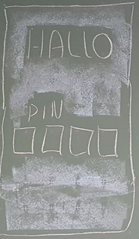 HALLO
PIN